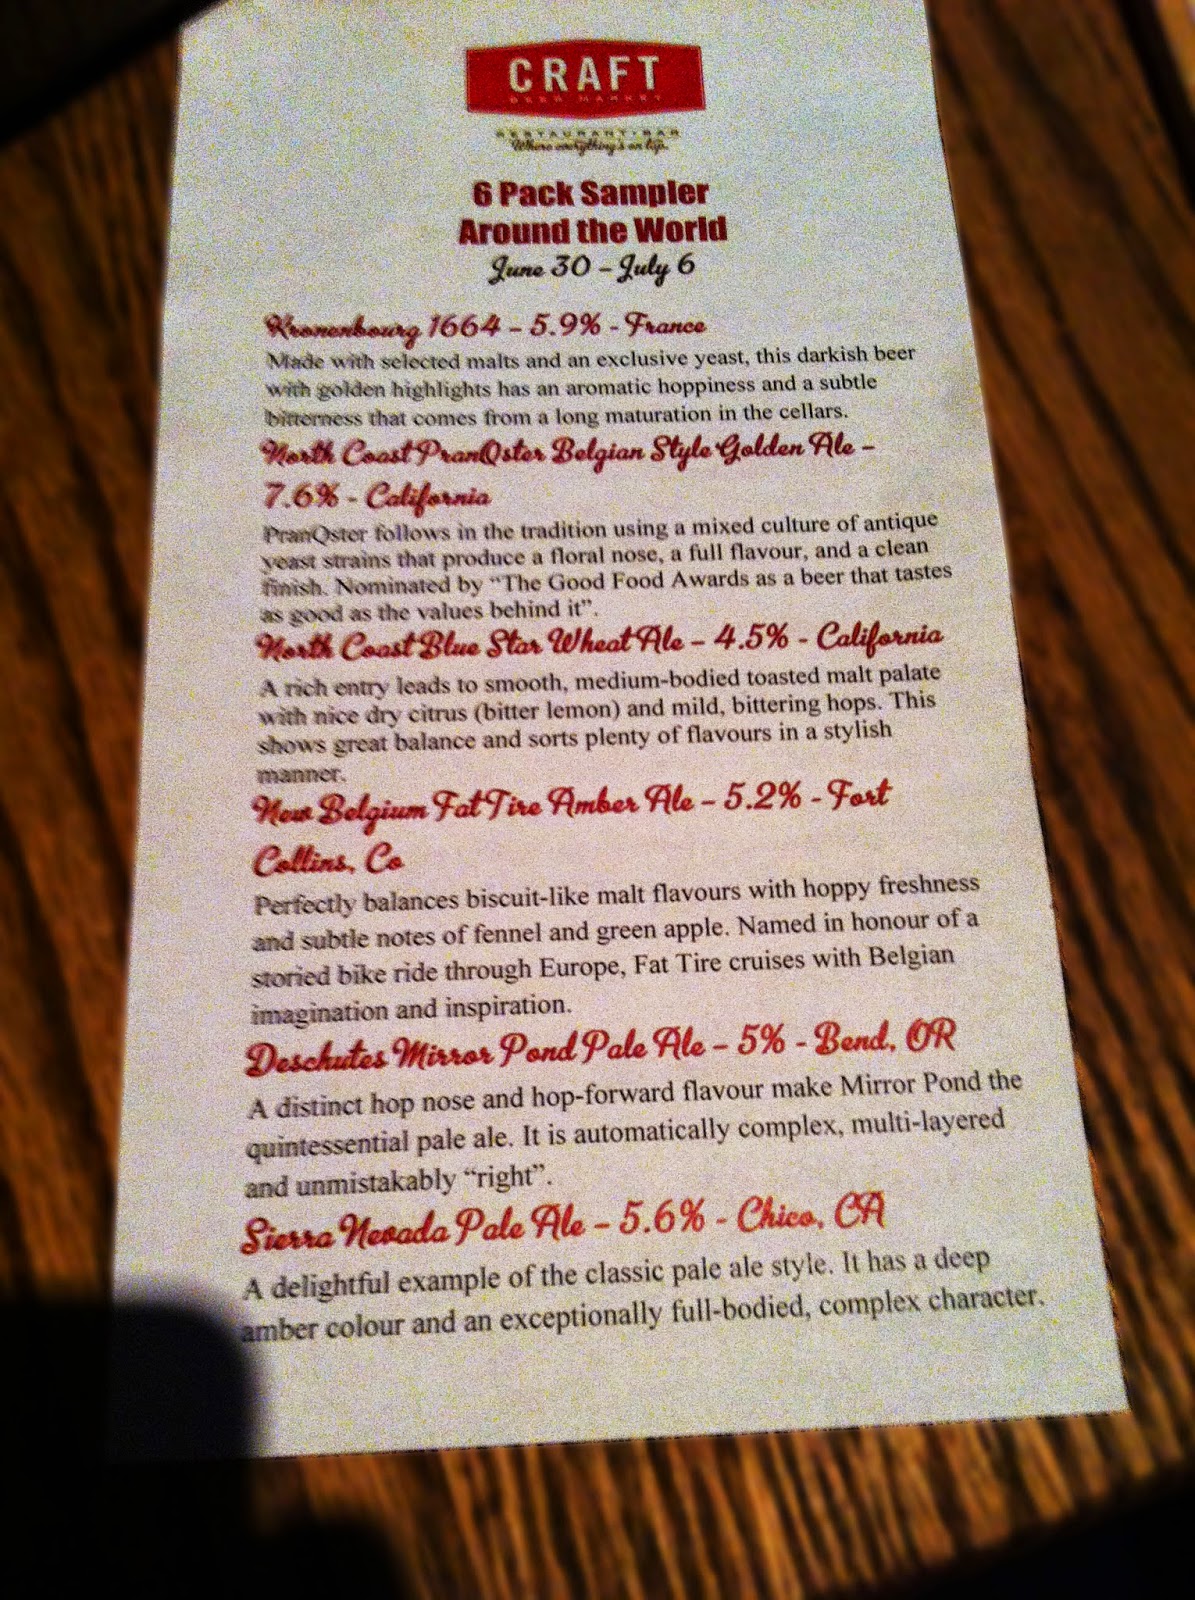 CRAFT
BEER MARKET
RESTAURANT • BAR
Where everything's on tap.
6 Pack Sampler
Around the World
June 30 – July 6
Kronenbourg 1664 – 5.9% - France
Made with selected malts and an exclusive yeast, this darkish beer
with golden highlights has an aromatic hoppiness and a subtle
bitterness that comes from a long maturation in the cellars.
North Coast PranQster Belgian Style Golden Ale –
7.6% - California
PranQster follows in the tradition using a mixed culture of antique
yeast strains that produce a floral nose, a full flavour, and a clean
finish. Nominated by “The Good Food Awards as a beer that tastes
as good as the values behind it”.
North Coast Blue Star Wheat Ale – 4.5% - California
A rich entry leads to smooth, medium-bodied toasted malt palate
with nice dry citrus (bitter lemon) and mild, bittering hops. This
shows great balance and sorts plenty of flavours in a stylish
manner.
New Belgium Fat Tire Amber Ale – 5.2% - Fort
Collins, Co
Perfectly balances biscuit-like malt flavours with hoppy freshness
and subtle notes of fennel and green apple. Named in honour of a
storied bike ride through Europe, Fat Tire cruises with Belgian
imagination and inspiration.
Deschutes Mirror Pond Pale Ale – 5% - Bend, OR
A distinct hop nose and hop-forward flavour make Mirror Pond the
quintessential pale ale. It is automatically complex, multi-layered
and unmistakably “right”.
Sierra Nevada Pale Ale – 5.6% - Chico, CA
A delightful example of the classic pale ale style. It has a deep
amber colour and an exceptionally full-bodied, complex character.